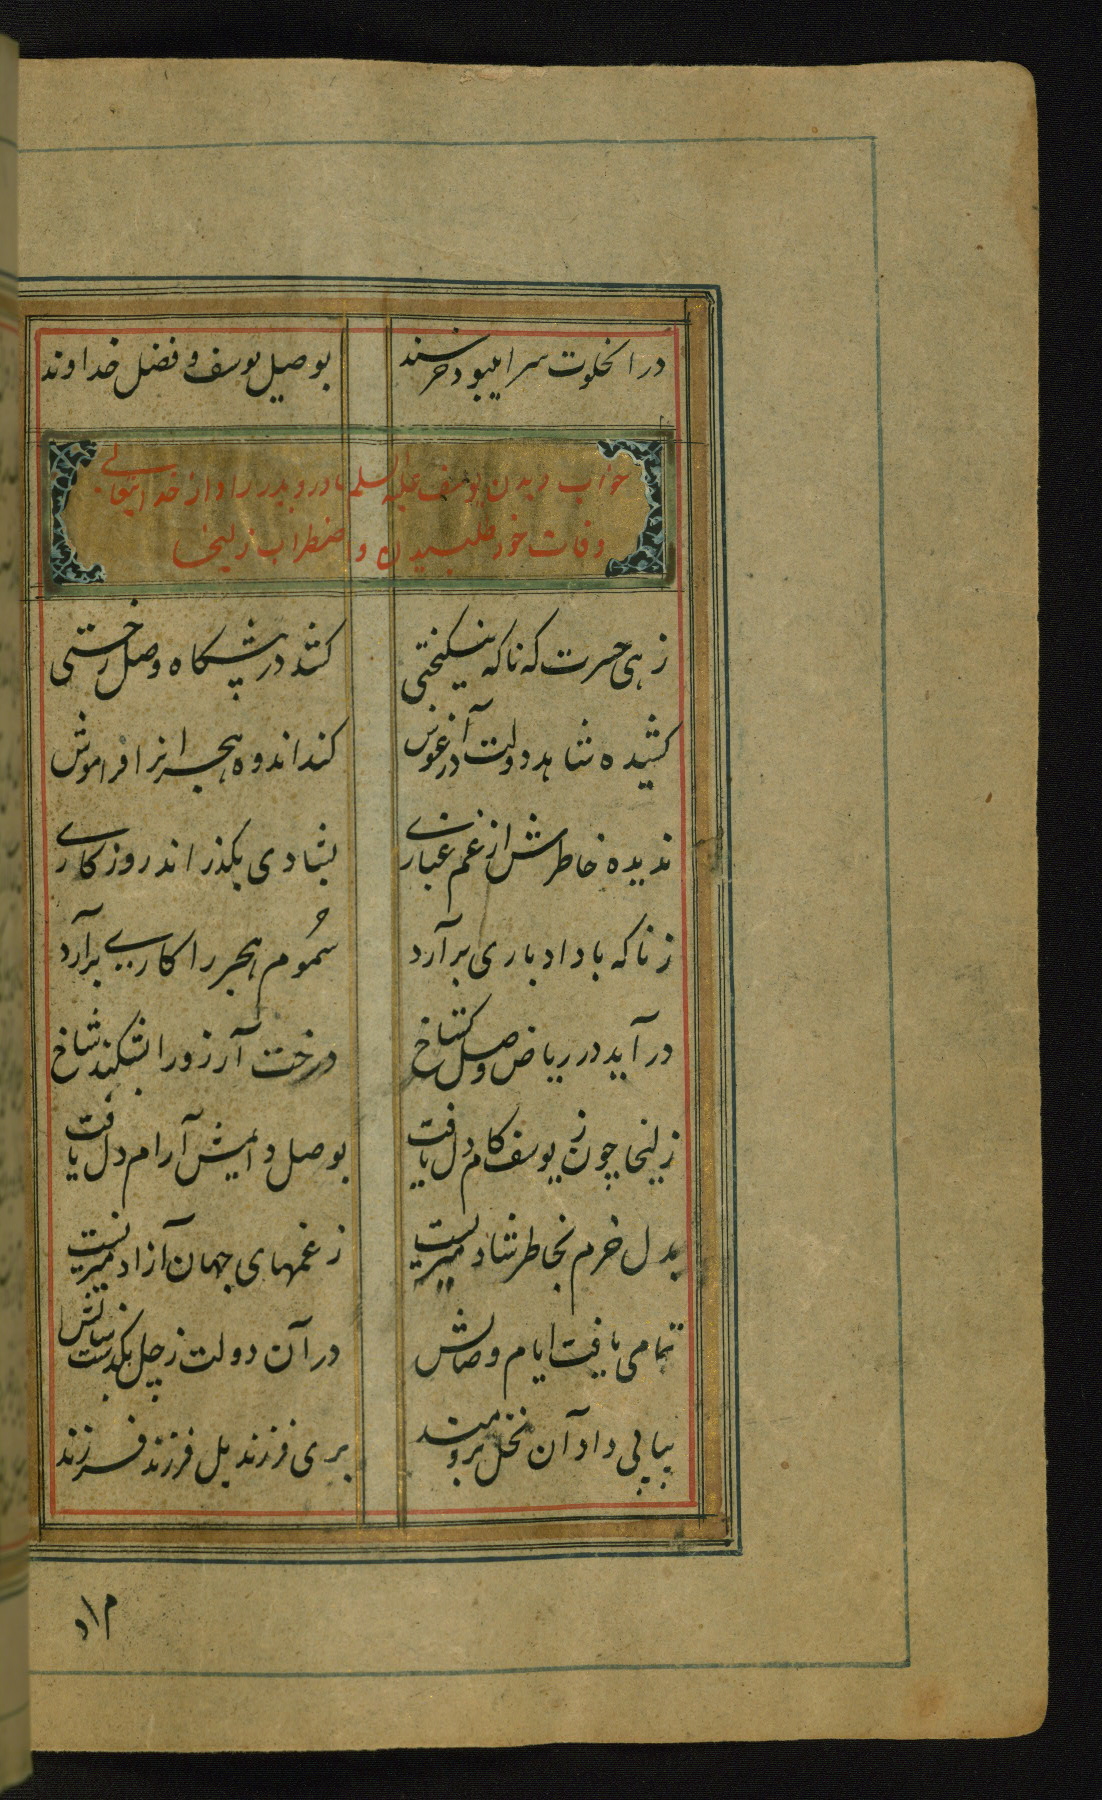 در انخلوت سرا میبود خرسند
بوصل یوسف و فضل خداوند
خواب دیدن یوسف علیه السلم مادر و پدر را و از خدایتعالی
وفات خود طلبیدن و اضطراب زلیخا
زهی حسرت که ناکه نیکبختی
کشد در پیشکاه وصل رختی
کشیده شاهد دولت در آغوش
کند اندوه هجرانرا فراموش
ندیده خاطرش از غم غباری
بشادی بکذراند روزکاری
زناکه باد ادباری برآرد
سُموم هجر را کاری برآرد
درآید در ریاض وصل کستاخ
درخت آرزو را بشکند شاخ
زلیخا چون ز یوسف کام دل یافت
بوصل دایمیش آرام دل یافت
بدل خرم بخاطر شاد میزیست
ز غمهای جهان آزاد میزیست
تمامی یافت ایام وصالش
در آن دولت ز چل بکذشت سالش
پیاپی داد آن نخل برومند
بری فرزند بل فرزند فرزند
مراد